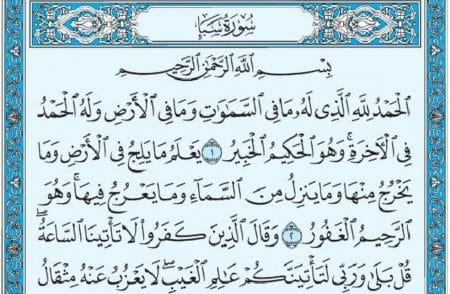 سُورَةُ سَبَإٍ
بِسْمِ ٱللَّهِ ٱلرَّحْمَٰنِ ٱلرَّحِيمِ
ٱلْحَمْدُ لِلَّهِ ٱلَّذِى لَهُۥ مَا فِى ٱلسَّمَٰوَٰتِ وَمَا فِى ٱلْأَرْضِ وَلَهُ ٱلْحَمْدُ
فِى ٱلْأٓخِرَةِ ۚ وَهُوَ ٱلْحَكِيمُ ٱلْخَبِيرُ ١ يَعْلَمُ مَا يَلِجُ فِى ٱلْأَرْضِ وَمَا
يَخْرُجُ مِنْهَا وَمَا يَنزِلُ مِنَ ٱلسَّمَآءِ وَمَا يَعْرُجُ فِيهَا ۚ وَهُوَ
ٱلرَّحِيمُ ٱلْغَفُورُ ٢ وَقَالَ ٱلَّذِينَ كَفَرُوا۟ لَا تَأْتِينَا ٱلسَّاعَةُ ۖ
قُلْ بَلَىٰ وَرَبِّى لَتَأْتِيَنَّكُمْ عَٰلِمِ ٱلْغَيْبِ ۖ لَا يَعْزُبُ عَنْهُ مِثْقَالُ